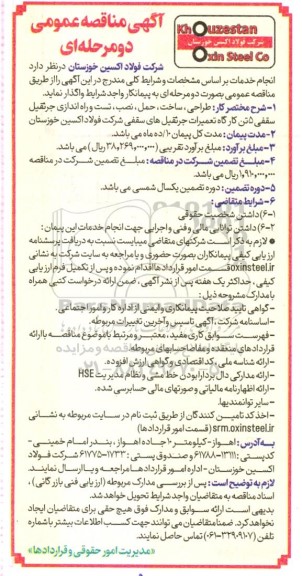 آگهی مناقصه عمومی
دو مرحله‌ای
Khouzestan
شرکت فولاد اکسین خوزستان
Oxin Steel Co
شرکت فولاد اکسین خوزستان در نظر دارد
انجام خدمات بر اساس مشخصات و شرایط کلی مندرج در این آگهی را از طریق
مناقصه عمومی بصورت دو مرحله‌ای به پیمانکار واجد شرایط واگذار نماید.
۱- شرح مختصر کار: طراحی، ساخت، حمل، نصب، تست و راه اندازی جرثقیل
سقفی ۵ تن کارگاه تعمیرات جرثقیل های سقفی شرکت فولاد اکسین خوزستان
۲- مدت پیمان: مدت کل پیمان ۱۰/ده ماه می باشد.
۳- مبلغ برآورد: مبلغ برآورد تقریبی (۳۸,۲۶۹,۰۰۰,۰۰۰ ریال) می باشد.
۴- مبلغ تضمین شرکت در مناقصه: مبلغ تضمین شرکت در مناقصه
۱,۹۱۰,۰۰۰,۰۰۰ ریال می باشد
۵- دوره تضمین: دوره تضمین یکسال شمسی می باشد.
۶- شرایط متقاضی:
۶-۱) داشتن شخصیت حقوقی
۶-۲) داشتن توانایی مالی و فنی و اجرایی جهت انجام خدمات این پیمان:
● لازم به ذکر است شرکتهای متقاضی میبایست نسبت به دریافت پرسشنامه
ارزیابی کیفی پیمانکاران بصورت حضوری و یا مراجعه به سایت شرکت به نشانی
oxinsteel.ir قسمت امور قراردادها اقدام نموده و پس از تکمیل فرم ارزیابی
کیفی، حداکثر یک هفته پس از نشر آگهی، ضمن ارائه درخواست کتبی همراه
با مدارک مشروحه ذیل:
- گواهی تایید صلاحیت پیمانکاری و ایمنی از اداره کار و امور اجتماعی.
- اساسنامه شرکت، آگهی تاسیس و آخرین تغییرات مربوطه.
- فهرست سوابق کاری مفید، معتبر و مرتبط با موضوع مناقصه با ارائه
قراردادهای منعقده و مفاصاحسابهای مربوطه
- ارائه شناسه ملی، کد اقتصادی و گواهی ارزش افزوده.
- ارائه مدارکی دال بر دارا بودن خط مشی و نظام مدیریت HSE
- ارائه اظهارنامه مالیاتی و صورتهای مالی حسابرسی شده.
- سایر توانمندیها.
- اخذ کد تامین کنندگان از طریق ثبت نام در سایت مربوطه به نشانی
srm.oxinsteel.ir (قسمت امور قراردادها)
به آدرس: اهواز - کیلومتر ۱۰ جاده اهواز، بندر امام خمینی -
کدپستی: ۱۳۱۱۱-۶۱۷۸۸ و صندوق پستی: ۱۷۳۳-۶۱۷۷۵ شرکت فولاد
اکسین خوزستان - اداره امور قراردادها مراجعه و یا ارسال نمایند.
لازم به توضیح است: پس از بررسی مدارک مربوطه (ارزیابی فنی بازرگانی)،
اسناد مناقصه به متقاضیان واجد شرایط تحویل خواهد شد.
بدیهی است ارائه سوابق و مدارک فوق هیچ حقی برای متقاضیان ایجاد
نخواهد کرد. ضمنا متقاضیان می توانند جهت کسب اطلاعات بیشتر با شماره
تلفن (۳۲۹۰۹۱۰۷-۰۶۱) تماس حاصل نمایند.
«مدیریت امور حقوقی و قراردادها»